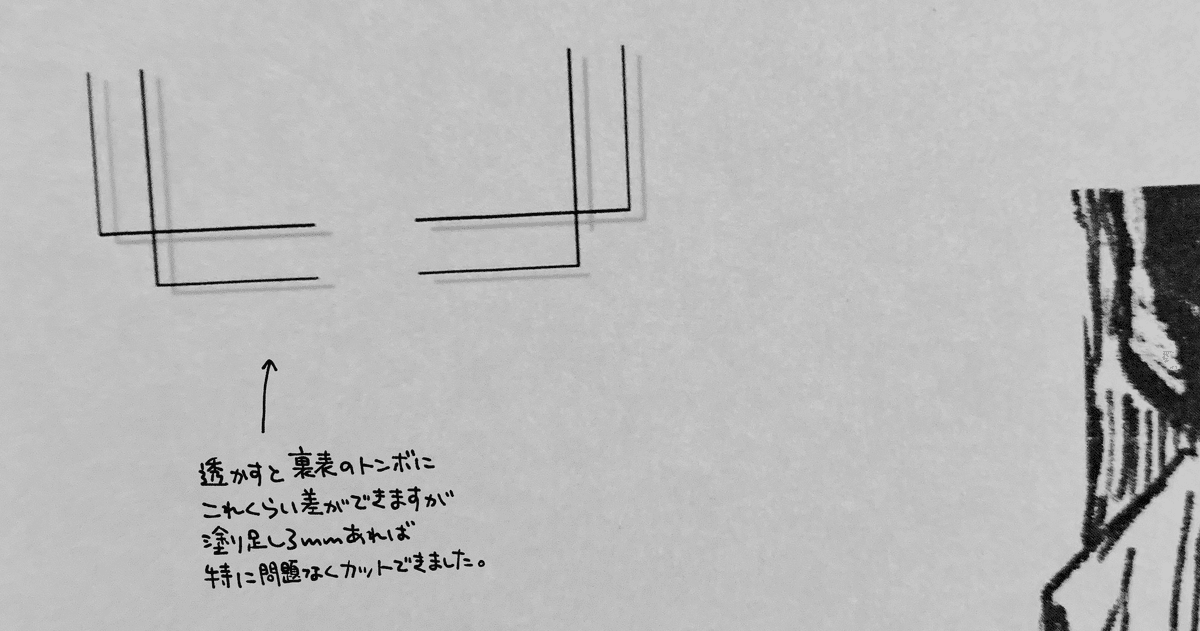 透かすと裏表のトンボに
これくらい差ができますが
塗り足し3mmあれば
特に問題なくカットできました。